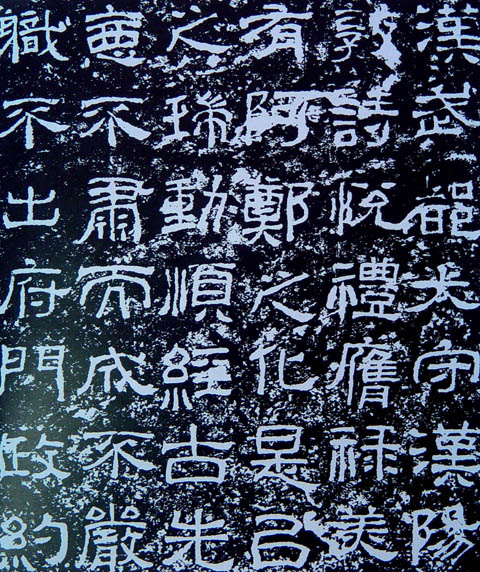 漢武都大守漢陽
敦詩悅禮膺祿美
有阿鄭之化是以
之瑞動順經古先
惡不肅而成不嚴
職不出府門政約